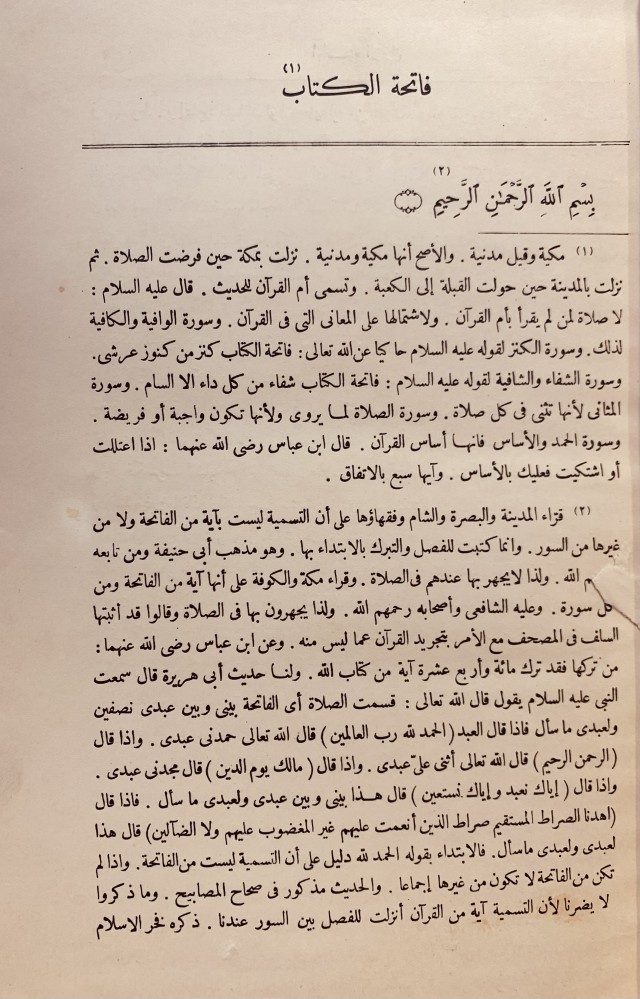 فاتحة الكتاب (١)
بِسْمِ ٱللَّهِ ٱلرَّحْمَـٰنِ ٱلرَّحِيمِ (٢)
(١) مكية وقيل مدنية . والأصح أنها مكية ومدنية . نزلت بمكة حين فرضت الصلاة . ثم
نزلت بالمدينة حين حولت القبلة إلى الكعبة . وتسمى أم القرآن للحديث . قال عليه السلام :
لا صلاة لمن لم يقرأ بأم القرآن . ولاشتمالها على المعانى التى فى القرآن . وسورة الوافية والكافية
لذلك. وسورة الكنز لقوله عليه السلام حاكيا عن الله تعالى: فاتحة الكتاب كنز من كنوز عرشى.
وسورة الشفاء والشافية لقوله عليه السلام : فاتحة الكتاب شفاء من كل داء الا السام . وسورة
المثانى لأنها تثنى فى كل صلاة . وسورة الصلاة لما يروى ولأنها تكون واجبة أو فريضة .
وسورة الحمد والأساس فانها أساس القرآن . قال ابن عباس رضى الله عنهما : اذا اعتللت
أو اشتكيت فعليك بالأساس . وآيها سبع بالاتفاق .
(٢) قرّاء المدينة والبصرة والشام وفقهاؤها على أن التسمية ليست بآية من الفاتحة ولا من
غيرها من السور . وانما كتبت للفصل والتبرك بالابتداء بها . وهو مذهب أبى حنيفة ومن تابعه
الله . ولذا لايجهر بها عندهم فى الصلاة . وقراء مكة والكوفة على أنها آية من الفاتحة ومن
كل سورة . وعليه الشافعى وأصحابه رحمهم الله . ولذا يجهرون بها فى الصلاة وقالوا قد أثبتها
السلف فى المصحف مع الأمر بتجريد القرآن عما ليس منه . وعن ابن عباس رضى الله عنهما:
من تركها فقد ترك مائة وأربع عشرة آية من كتاب الله . ولنا حديث أبى هريرة قال سمعت
النبى عليه السلام يقول قال الله تعالى : قسمت الصلاة أى الفاتحة بينى وبين عبدى نصفين
ولعبدى ما سأل فاذا قال العبد (الحمد لله رب العالمين) قال الله تعالى حمدنى عبدى . واذا قال
(الرحمن الرحيم) قال الله تعالى أثنى علىّ عبدى . واذا قال ( مالك يوم الدين ) قال مجدنى عبدى .
واذا قال ( إياك نعبد وإياك نستعين ) قال هذا بينى وبين عبدى ولعبدى ما سأل . فاذا قال
(اهدنا الصراط المستقيم صراط الذين أنعمت عليهم غير المغضوب عليهم ولا الضآلين) قال هذا
لعبدى ولعبدى ماسأل. فالابتداء بقوله الحمد لله دليل على أن التسمية ليست من الفاتحة. واذا لم
تكن من الفاتحة لا تكون من غيرها إجماعا . والحديث مذكور فى صحاح المصابيح . وما ذكروا
لا يضرنا لأن التسمية آية من القرآن أنزلت للفصل بين السور عندنا . ذكره فخر الاسلام